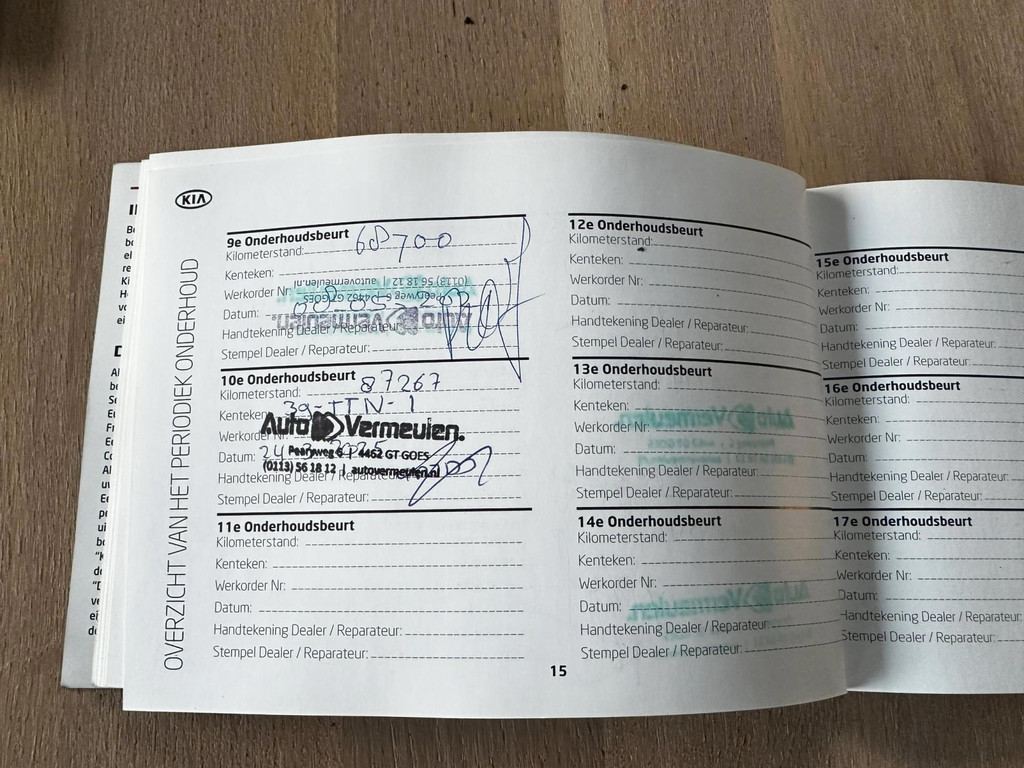 KIA
OVERZICHT VAN HET PERIODIEK ONDERHOUD
9e Onderhoudsbeurt
Kilometerstand: 68700
Kenteken:
(0113) 56 18 12 autovermeulen.nl
Werkorder Nr:
Pearyweg 6 4462 GT GOES
Datum:
Auto Vermeulen.
Handtekening Dealer / Reparateur:
Stempel Dealer / Reparateur:
10e Onderhoudsbeurt
Kilometerstand: 87267
Kenteken: 39-TTN-1
Auto Vermeulen.
Werkorder Nr:
Pearyweg 6 4462 GT GOES
Datum: 24
(0113) 56 18 12 | autovermeulen.nl
Handtekening Dealer / Reparateur:
Stempel Dealer / Reparateur:
11e Onderhoudsbeurt
Kilometerstand:
Kenteken:
Werkorder Nr:
Datum:
Handtekening Dealer / Reparateur:
Stempel Dealer / Reparateur:
12e Onderhoudsbeurt
Kilometerstand:
Kenteken:
Werkorder Nr:
Datum:
Handtekening Dealer / Reparateur:
Stempel Dealer / Reparateur:
13e Onderhoudsbeurt
Kilometerstand:
Kenteken:
Auto Vermeulen.
Werkorder Nr:
Datum:
Handtekening Dealer / Reparateur:
Stempel Dealer / Reparateur:
14e Onderhoudsbeurt
Kilometerstand:
Kenteken:
Werkorder Nr:
Auto Vermeulen.
Datum:
Handtekening Dealer / Reparateur:
Stempel Dealer / Reparateur:
15
15e Onderhoudsbeurt
Kilometerstand:
Kenteken:
Werkorder Nr:
Datum:
Handtekening Dealer / Reparateur:
Stempel Dealer / Reparateur:
16e Onderhoudsbeurt
Kilometerstand:
Kenteken:
Werkorder Nr:
Datum:
Handtekening Dealer / Reparateur:
Stempel Dealer / Reparateur:
17e Onderhoudsbeurt
Kilometerstand:
Kenteken:
Werkorder Nr:
Datum:
Handtekening Dealer / Reparateur:
Stempel Dealer / Reparateur: